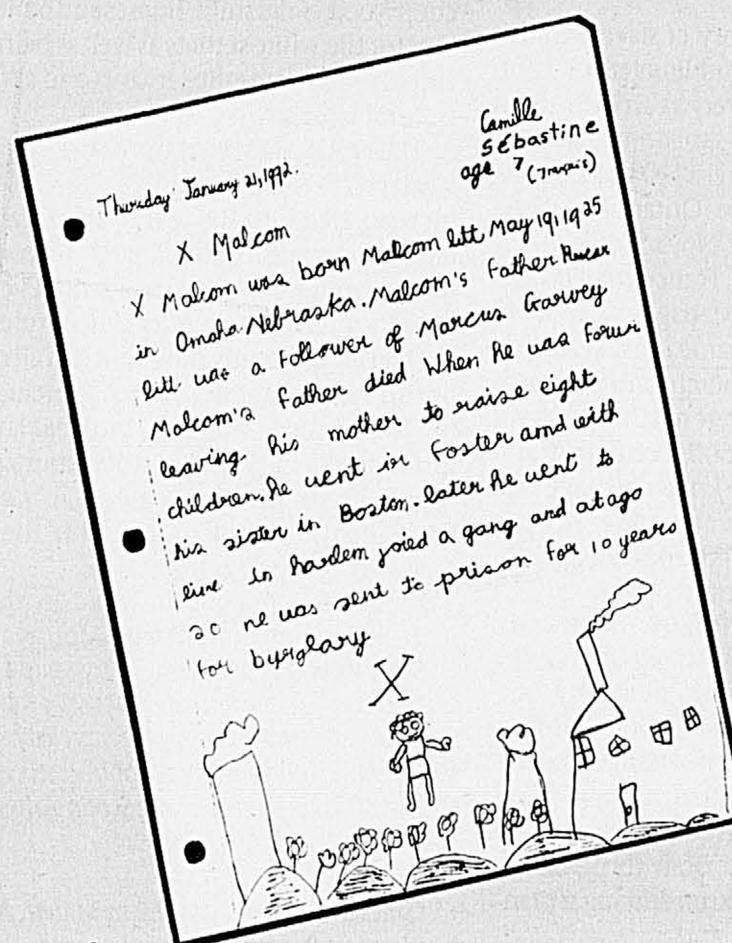 Camille
Sébastine
age 7
(7 français)
Thursday January 21, 1992.
X Malcom
X Malcom was born Malcom litt May 19, 1925
in Omaha Nebraska. Malcom's Father
litt was a Follower of Marcus Garvey
Malcom's Father died When he was
leaving his mother to raise eight
children. he went in Foster amd with
his sister in Boston. later he went to
live in harlem joied a gang and at ago
20 he was sent to prison For 10 years
for byrglary
X